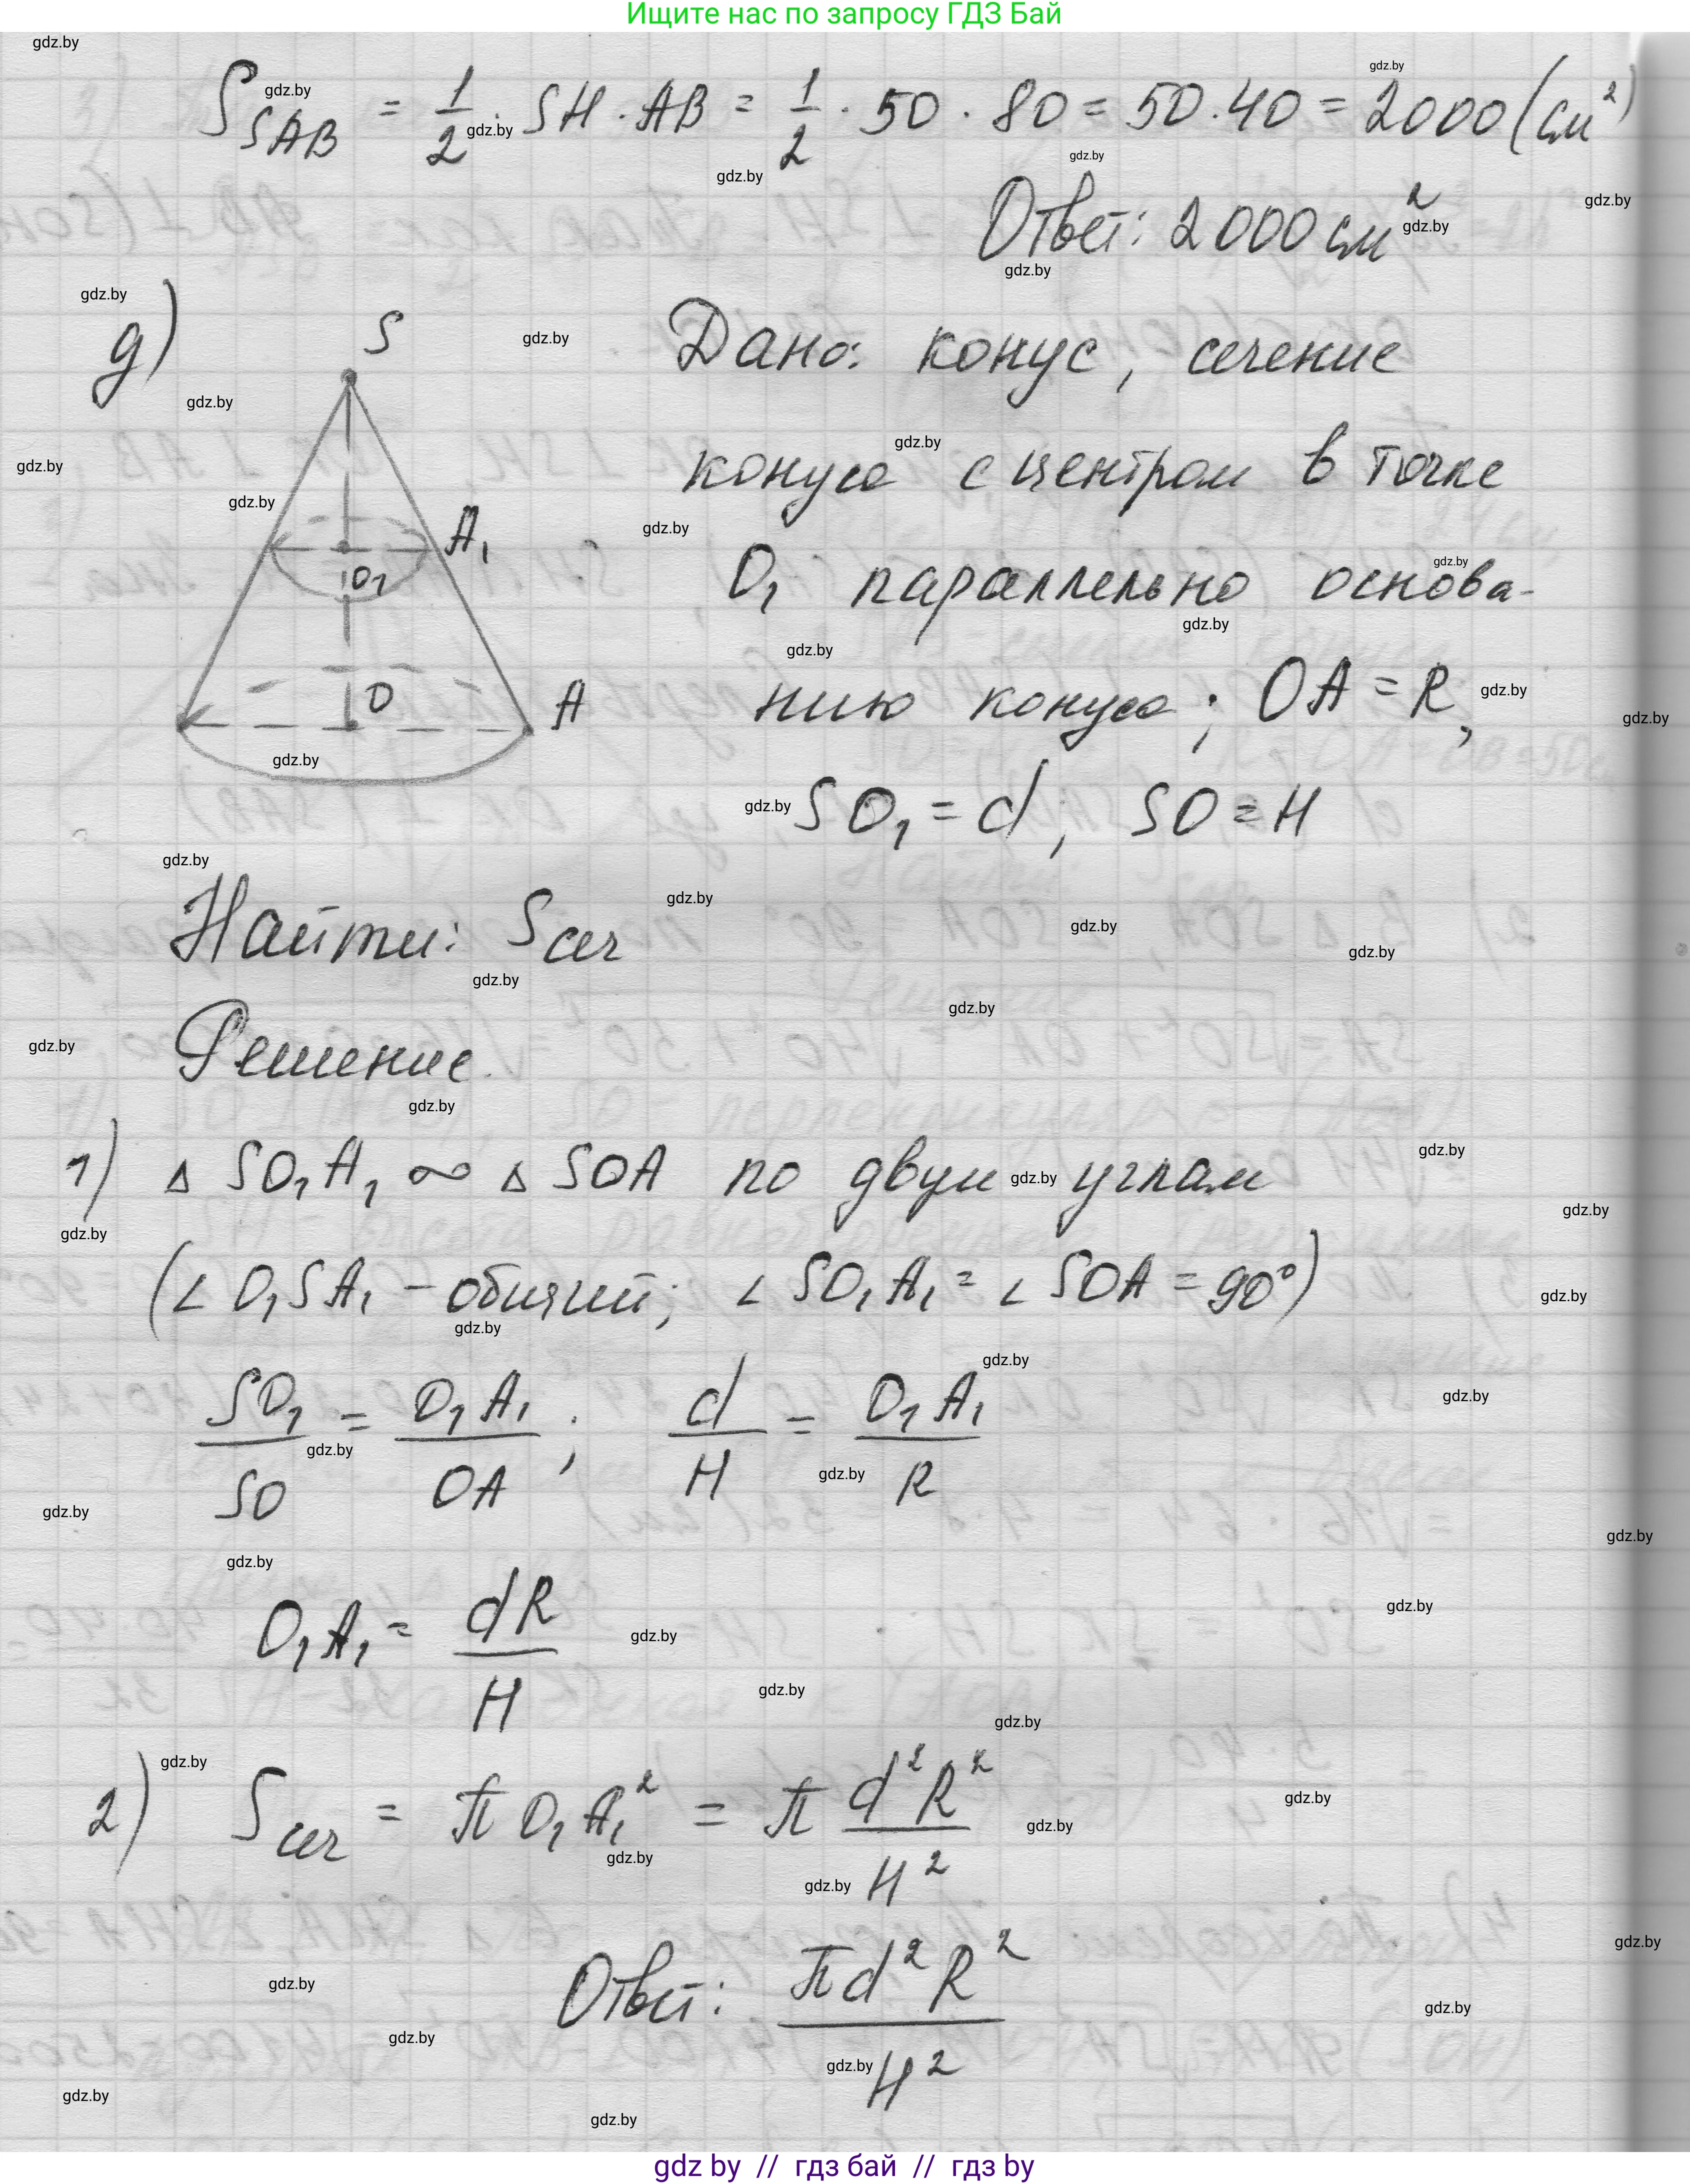 Ищите нас по запросу ГДЗ Бай
S_SAB = 1/2 · SH · AB = 1/2 · 50 · 80 = 50 · 40 = 2000 (см²)
Ответ: 2000 см²
д)
S
A₁
O₁
O
A
Дано: конус, сечение
конуса с центром в точке
O₁ параллельно основа-
нию конуса; OA = R,
SO₁ = d; SO = H
Найти: Sсеч
Решение.
1) Δ SO₁A₁ ∞ Δ SOA по двум углам
(∠ O₁SA₁ – общий; ∠ SO₁A₁ = ∠ SOA = 90°)
SO₁/SO = O₁A₁/OA; d/H = O₁A₁/R
O₁A₁ = dR/H
2) Sсеч = π O₁A₁² = π d²R²/H²
Ответ: πd²R²/H²
gdz by // гдз бай // гдз by